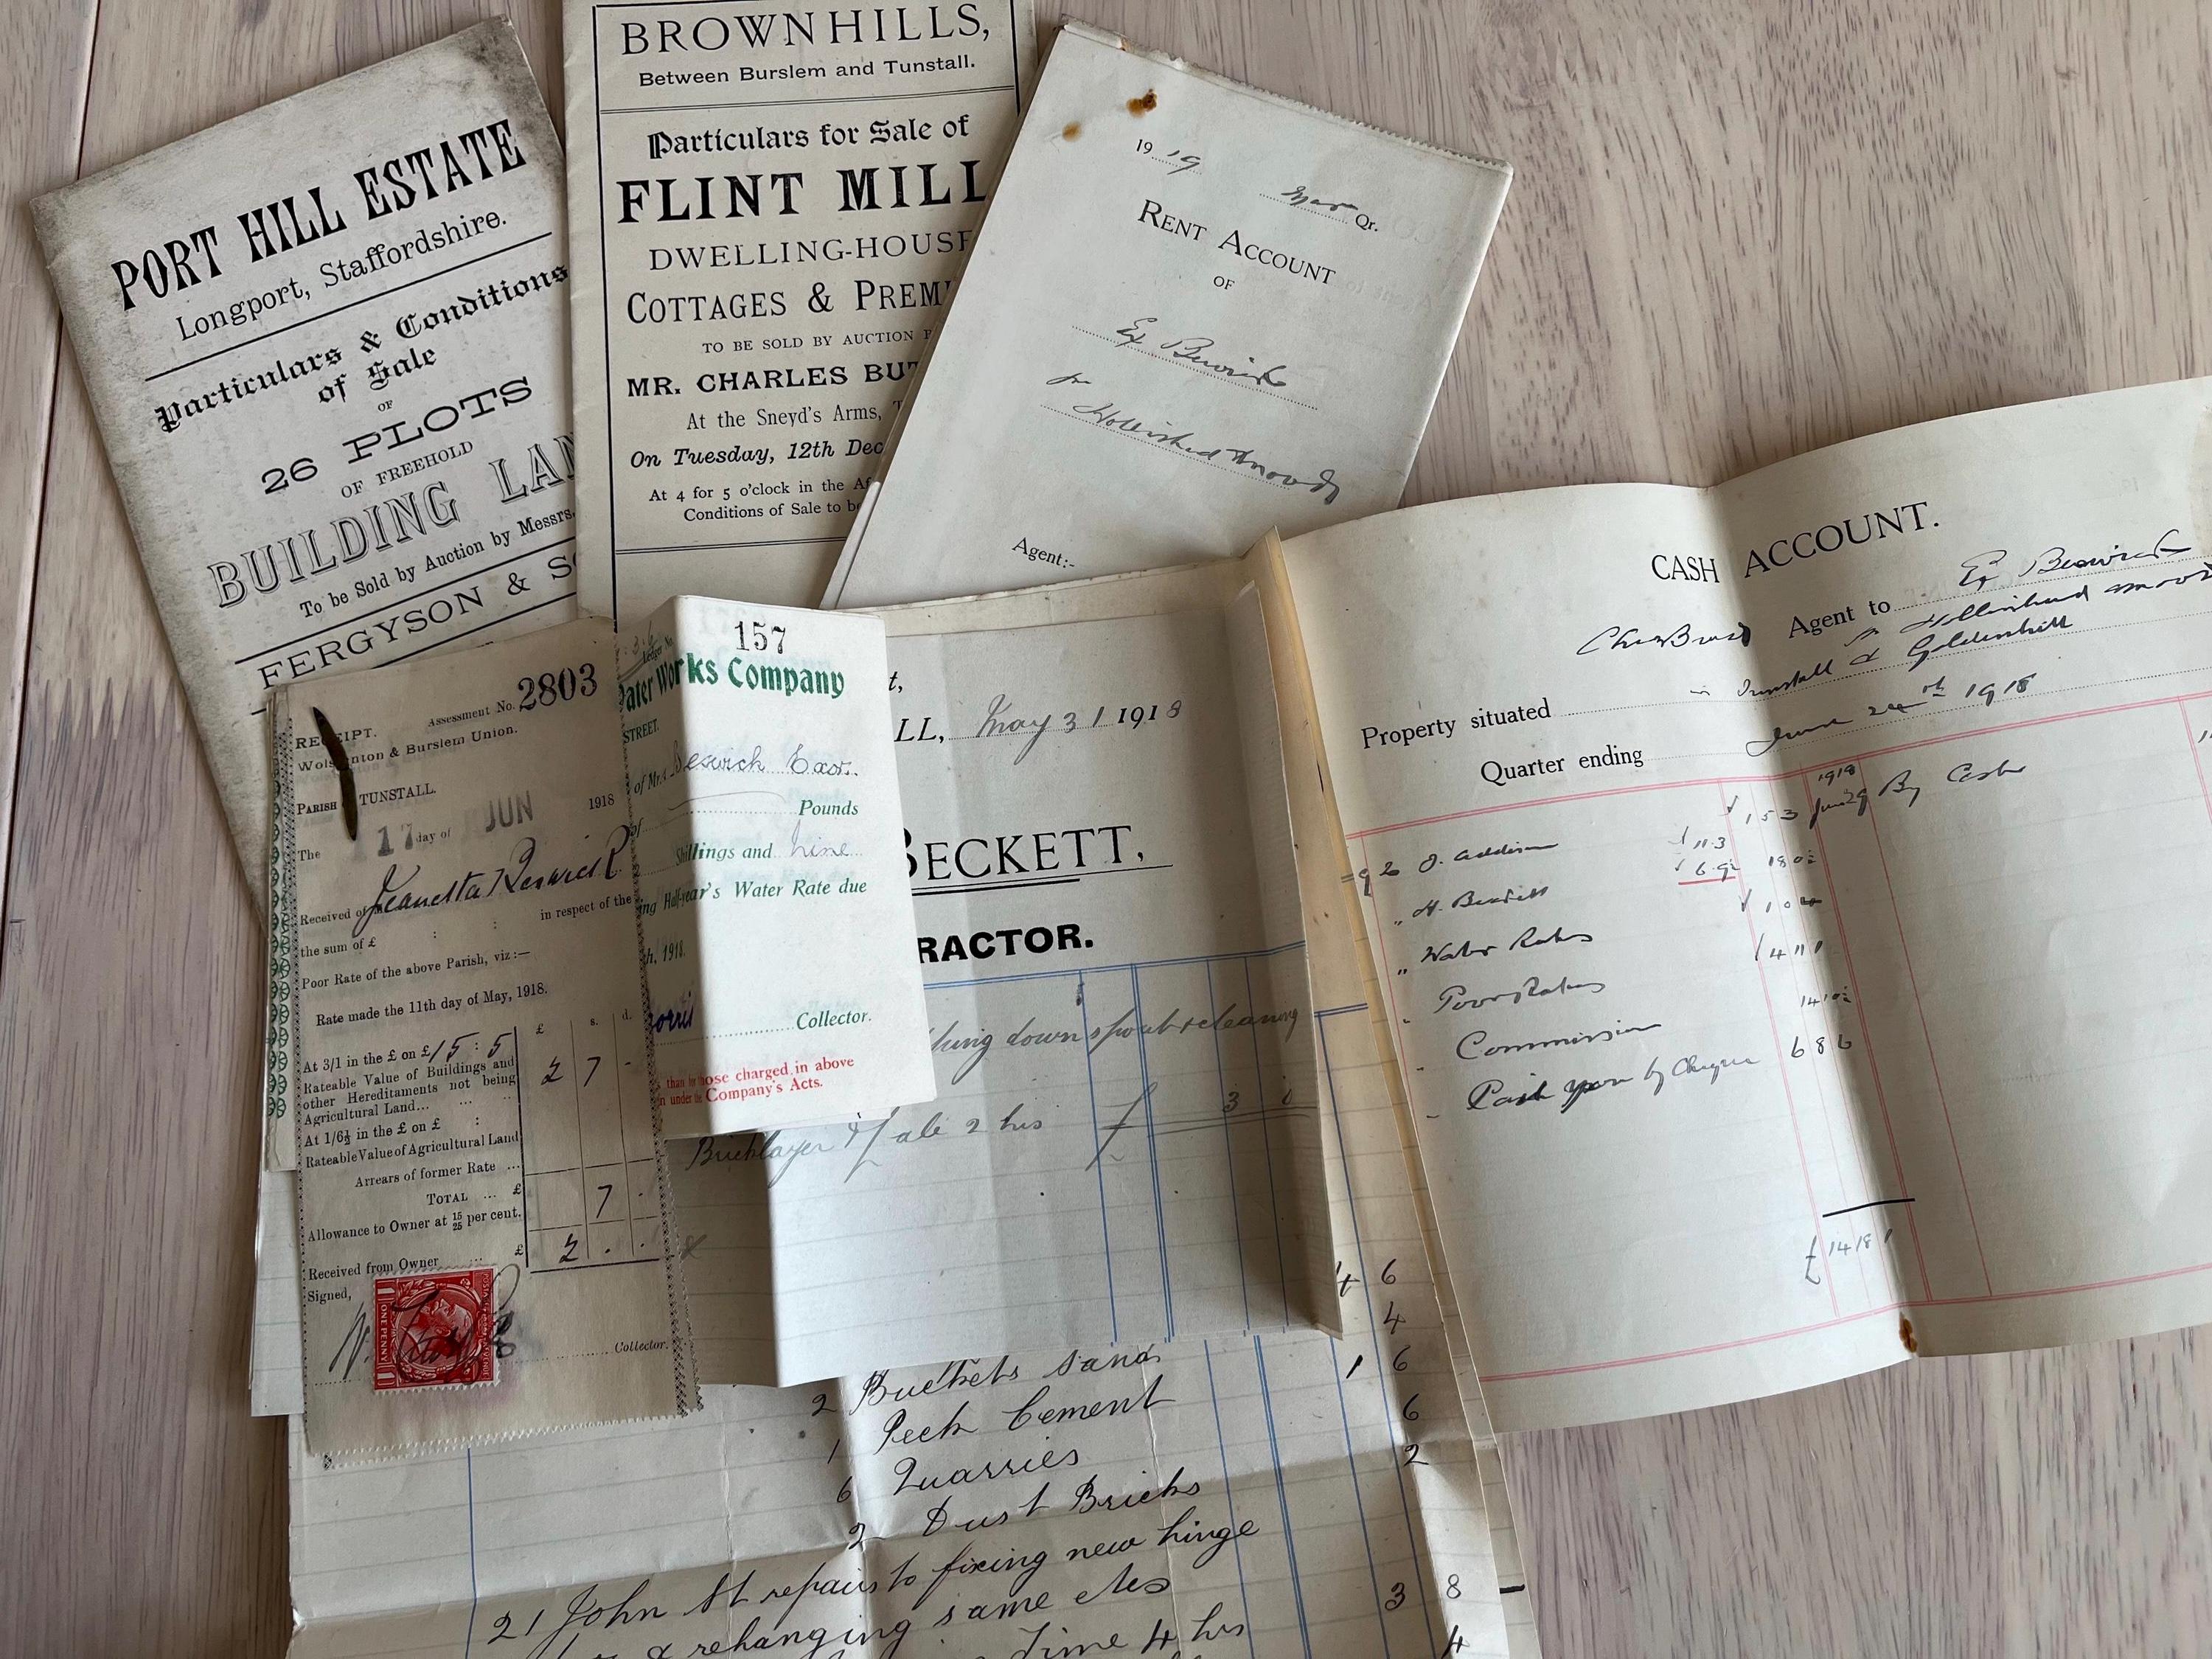 PORT HILL ESTATE
Longport, Staffordshire.
Particulars & Conditions
of Sale
OF
26 PLOTS
OF FREEHOLD
BUILDING LAN
To be Sold by Auction by Messrs.
FERGYSON & SO
BROWNHILLS,
Between Burslem and Tunstall.
Particulars for Sale of
FLINT MILL
DWELLING-HOUSE
COTTAGES & PREMI
TO BE SOLD BY AUCTION B
MR. CHARLES BUT
At the Sneyd's Arms, T
On Tuesday, 12th Dec
At 4 for 5 o'clock in the Af
Conditions of Sale to be
1919
Mar Qr.
RENT ACCOUNT
OF
Ex Beswick
for
Hollinshed & Moody
Agent:-
CASH ACCOUNT.
Agent to Ex Beswick
Property situated in Tunstall & Goldenhill
Quarter ending June 24th 1918
1918
June 29 By Cash
J. Addison 1 5 3
H. Beckett
11.3
Water Rates 1 0 4
Poor Rates 4 11 1
Commission
Paid you by Cheque 6 8 6
£ 14 18 1
RECEIPT. Assessment No. 2803
Wolstanton & Burslem Union.
PARISH TUNSTALL.
The 17 day of JUN 1918
Received of Jeanetta Beswick
the sum of £ : : in respect of the
Poor Rate of the above Parish, viz:—
Rate made the 11th day of May, 1918.
£ s. d.
At 3/1 in the £ on £15 : 5
Rateable Value of Buildings and
other Hereditaments not being
Agricultural Land... 2 7 -
At 1/6½ in the £ on £ :
Rateable Value of Agricultural Land
Arrears of former Rate ...
TOTAL ... £
Allowance to Owner at 15/25 per cent. 7 .
Received from Owner ... £ 2 . .
Signed,
ONE PENNY
Collector.
157
Ledger No.
ater Works Company
STREET.
of Mr. Beswick Exors.
Pounds
Shillings and nine
ing Half-year's Water Rate due
h, 1918.
Collector.
than those charged in above
n under the Company's Acts.
t,
LL, May 31 1918
BECKETT,
RACTOR.
hing down spout & cleaning
Bricklayer & Lab 2 hrs £ 3 0
4 6
4
2 Buckets Sand 1 6
1 Peck Cement 6
6 Quarries 2
2 Dust Bricks
21 John St repairs to fixing new hinge
& rehanging same etc 3 8
Time 4 hrs 4